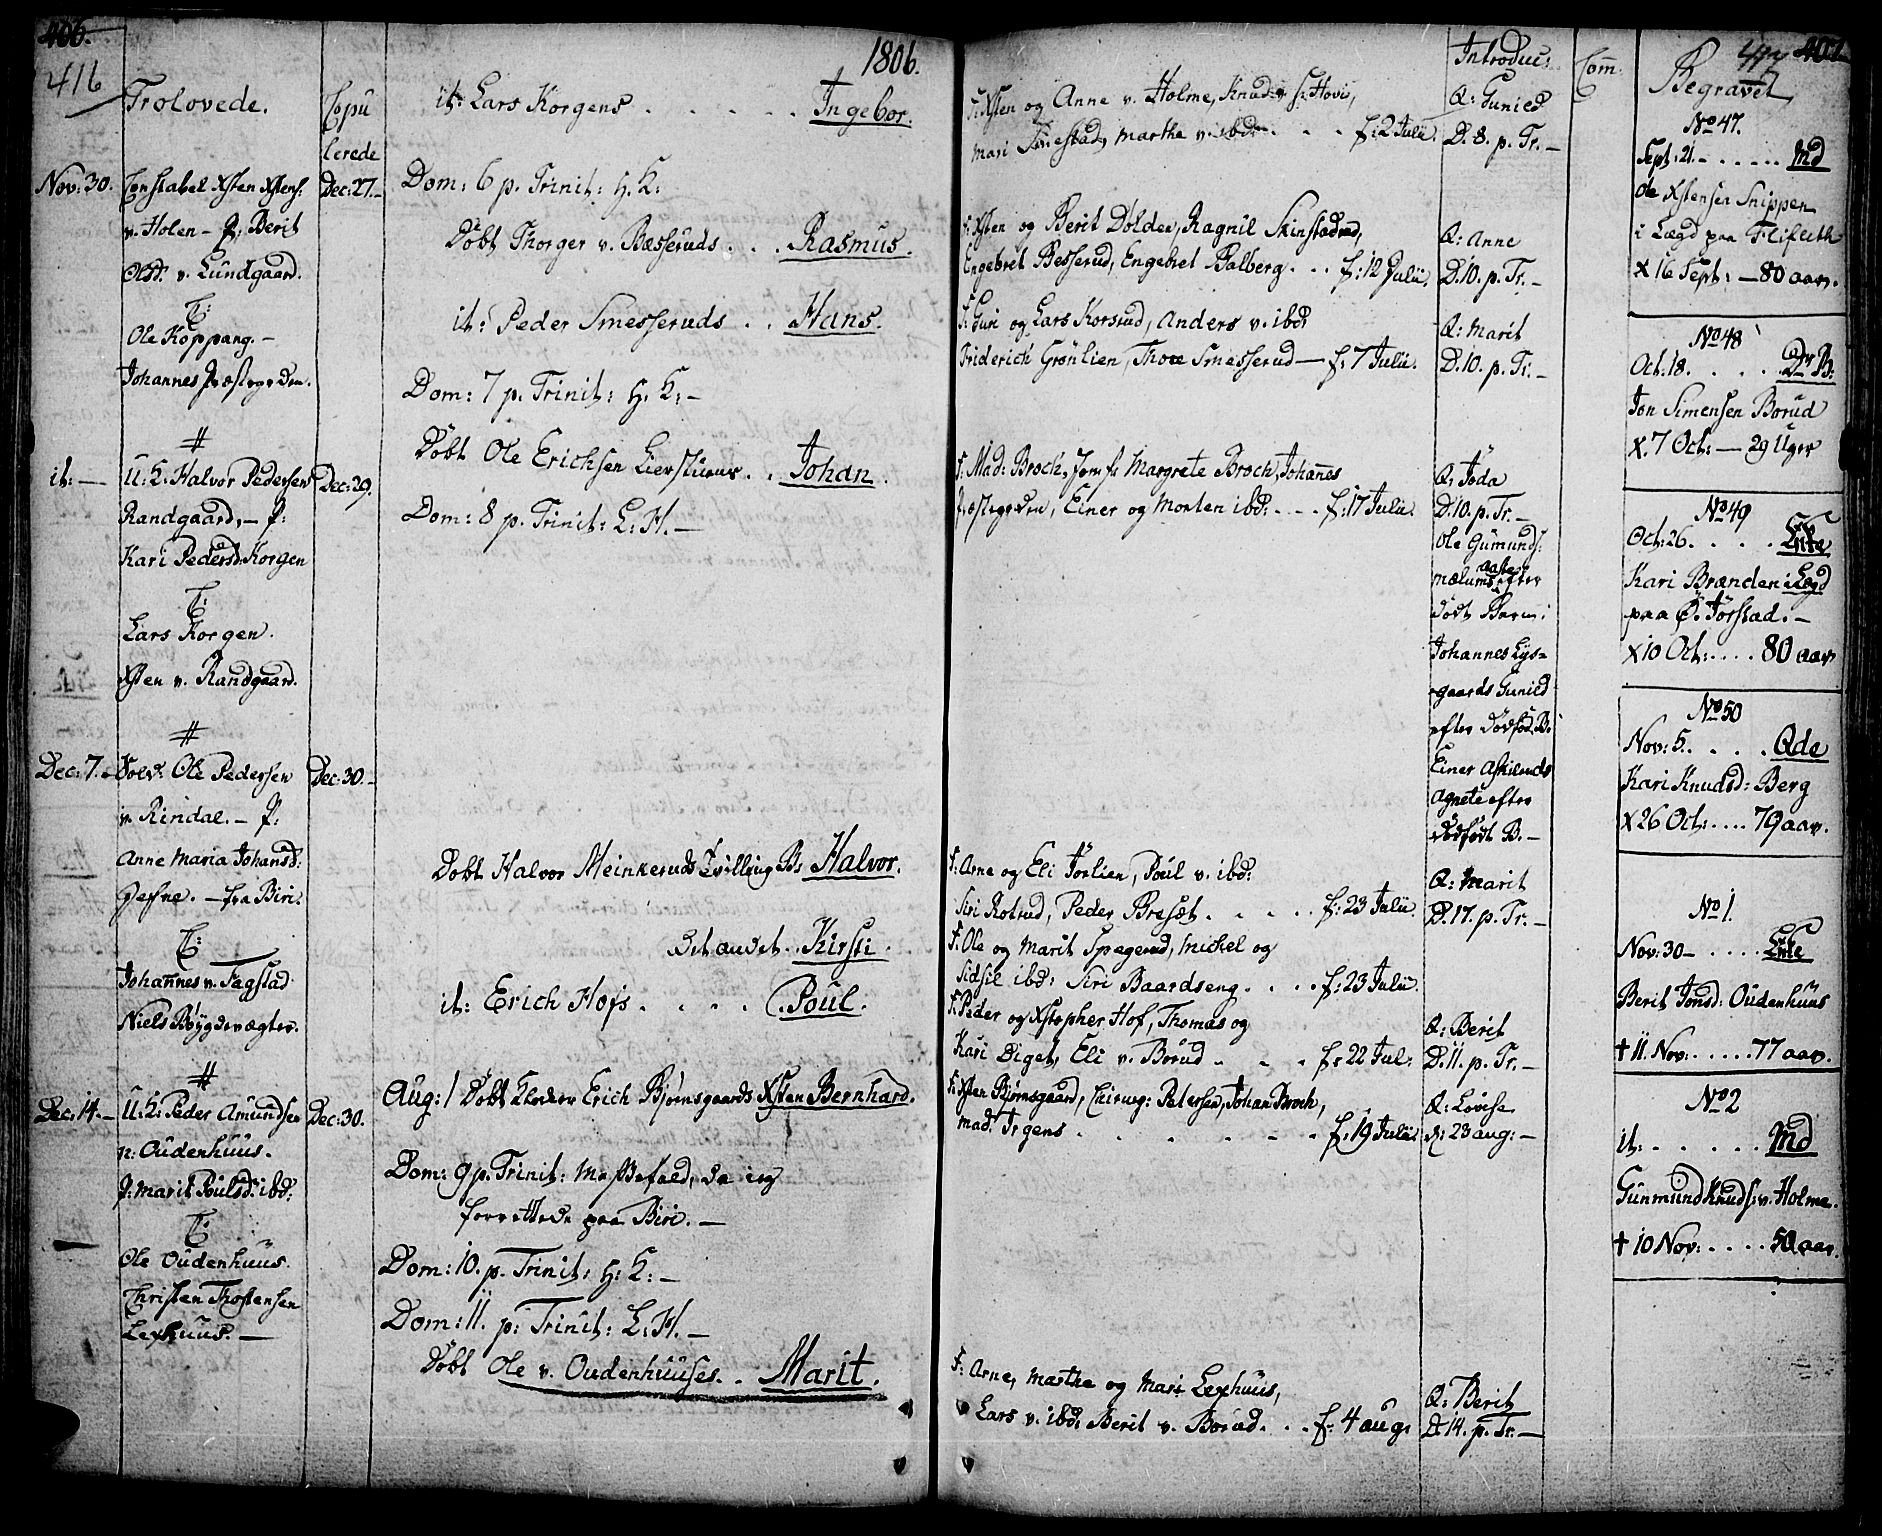 406.
416
Trolovede.
Copu
lerede
Nov: 30. Constabel Xsten Xstens: Dec: 27.-
v. Holen - P: Berit
Olsd: v. Lundgaard.
T:
Ole Koppang. -
Johannes Præstegrden.
#
it: - U: K: Halvor Pedersen Dec: 29.
Randgaard, - P:
Kari Pedersd: Korgen
T:
Lars Korgen.
Xsten v. Randgaard.
#
Dec: 7. - Sold: Ole Pedersen Dec: 30. -
v. Rindal. - P:
Anne Maria Johansd:
- fra Biri.
T:
Johannes v. Fagstad
Niels Bÿgdevægter.
#
Dec: 14. - U: K: Peder Amundsen Dec: 30.
n: Oudenhuus.
P: Marit Poulsd: ibd:
T:
Ole Oudenhuus.
Christen Thostensen
Lexhuus. -
1806.
it: Lars Korgens . . . . . Ingebor.
Dom: 6 p. Trinit: H. K:
Døbt Thorger v. Bæsseruds . . . Rasmus.
it: Peder Smesseruds . . Hans.
Dom: 7 p. Trinit: H. K: -
Døbt Ole Erichsen Lierstuens . . Johan.
Dom: 8 p. Trinit: L: H. -
Døbt Halvor Meinkeruds Tvilling B: Halvor.
Det andet. . Kirsti.
it: Erich Hofs . . . . Poul.
Aug: 1 Døbt Erich Bjørnsgaards Xsten Bernhard.
Dom: 9 p. Trinit: Messefald, da jeg
forrettede paa Biri. -
Dom: 10. p. Trinit: H: K: -
Dom: 11. p: Trinit: L: H. -
Døbt Ole v. Oudenhuuses. . Marit.
F: Xsten og Anne v. Holme, Knud v. Hovi,
Mari Fierestad, Marthe v. ibd: . . . f: 2 Julii.
F: Xsten og Berit Dolden, Ragnil Skinstad,
Engebret Besserud, Engebret Balberg . . . f: 12 Julii.
F: Guri og Lars Korsrud, Anders v. ibd
Friderich Grönlien, Thore Smesserud - f: 7 Julii.
F: Mad: Broch, Jomfr Margrete Broch, Johannes
Præstegrden, Einer og Morten ibd: . . . f: 17 Julii.
F: Arne og Eli Jörlien, Poul v. ibd:
Siri Rotrud, Peder Bresæt . . . . . f: 23 Julii.
F: Ole og Marit Spegerud, Mickel og
Sidsil ibd: Siri Baardseng. . . . . f: 23 Julii.
F: Peder og Xstopher Hof, Thomas og
Kari Diget, Eli v. Borud . . . f: 22 Jul:
F: Xsten Bjørnsgaard, Chirurg: Petersen, Johan Broch,
Mad: Irgens . . . . . . . f: 19 Julii.
F: Arne, Marthe og Mari Lexhuus,
Lars v. ibd: Berit v. Borud. . . f: 4 aug:
Introduc:
Q: Gunild
D. 8. p. Tr. -
Q: Anne
D. 10. p. Tr. -
Q: Marit
D. 10. p. Tr. -
Q: Joda
D. 10. p. Tr. -
Ole Gumunds:
Mælums Aaste efter
dødt Barn:
Johannes Lys=
gaards Gunild
efter dødfød B:
Einer Askeruds
Agnete efter
dödfödt B. -
Q: Marit
D. 17. p. Tr: -
Q: Berit
D. 11. p. Tr. -
Q: Lovise
d: 23 aug: -
Q: Berit
D. 14. p. Tr. -
Com:
417 407
Begravet
No 47.
Sept: 21. - . . . . . . Md
Ole Xstensen Snippen
i Lægd paa Flifeith
X 16 Sept: - 80 aar.
No 48
Oct: 18. . . . . Dr B:
Jon Simensen Borud
X. 7 Oct: - 29 Uger
No 49
Oct: 26. . . . . Enke
Kari Brænden i Lægd
paa Ø. Jörstad. -
X 10 Oct: . . . . 80 aar
No 50
Nov: 5. . . . . Qde
Kari Knudsd: Berg
X 26 Oct: . . . . 79 aar.
No 1.
Nov: 30 - . . . . Enke
Berit Jonsd: Oudenhuus
† 11. Nov: . . . . . 77 aar.
No 2
it: . . . . . . Md
Gunmund Knuds: v. Holme.
† 10 Nov: . . . . 50 aar.